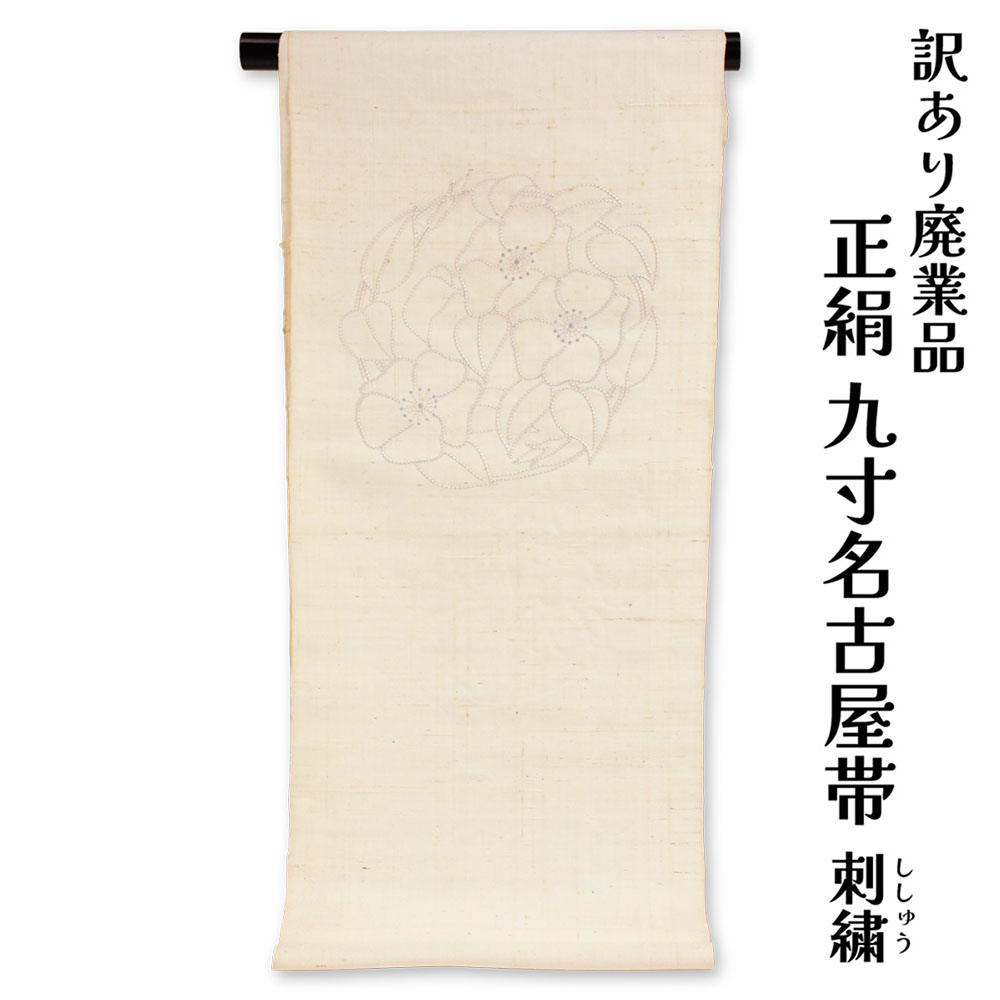 訳あり廃業品
正絹 九寸名古屋帯 刺繍
ししゅう